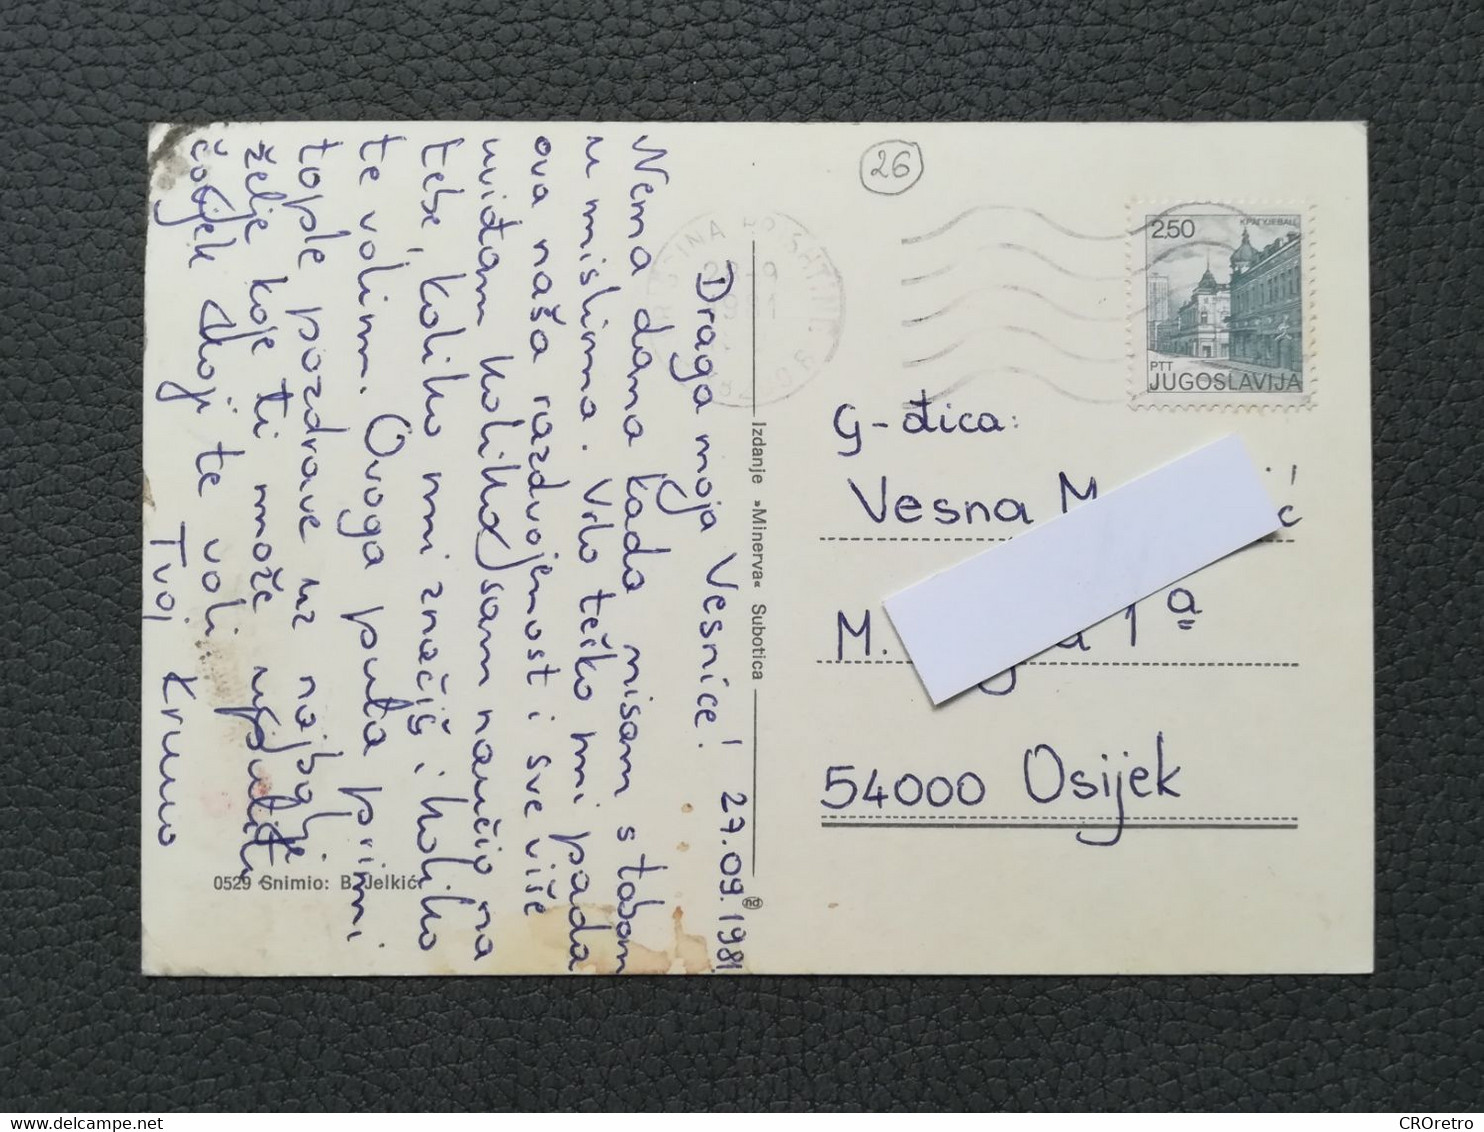 27.09.1981
Draga moja Vesnice!
Nema dana kada nisam s tobom
u mislima. Vrlo teško mi pada
ova naša razdvojenost i sve više
uviđam koliko sam naučio na
tebe, koliko mi značiš i koliko
te volim. Ovoga puta primi
tople pozdrave uz najbolje
želje koje ti može uputiti
čovjek koji te voli.
Tvoj Kruno
0529 Snimio: B. Jelkić
Izdanje »Minerva« Subotica
nd
26
1981
2,50
КРАГУЈЕВАЦ
PTT
JUGOSLAVIJA
G-đica:
Vesna
M. 1a
54000 Osijek
CROretro